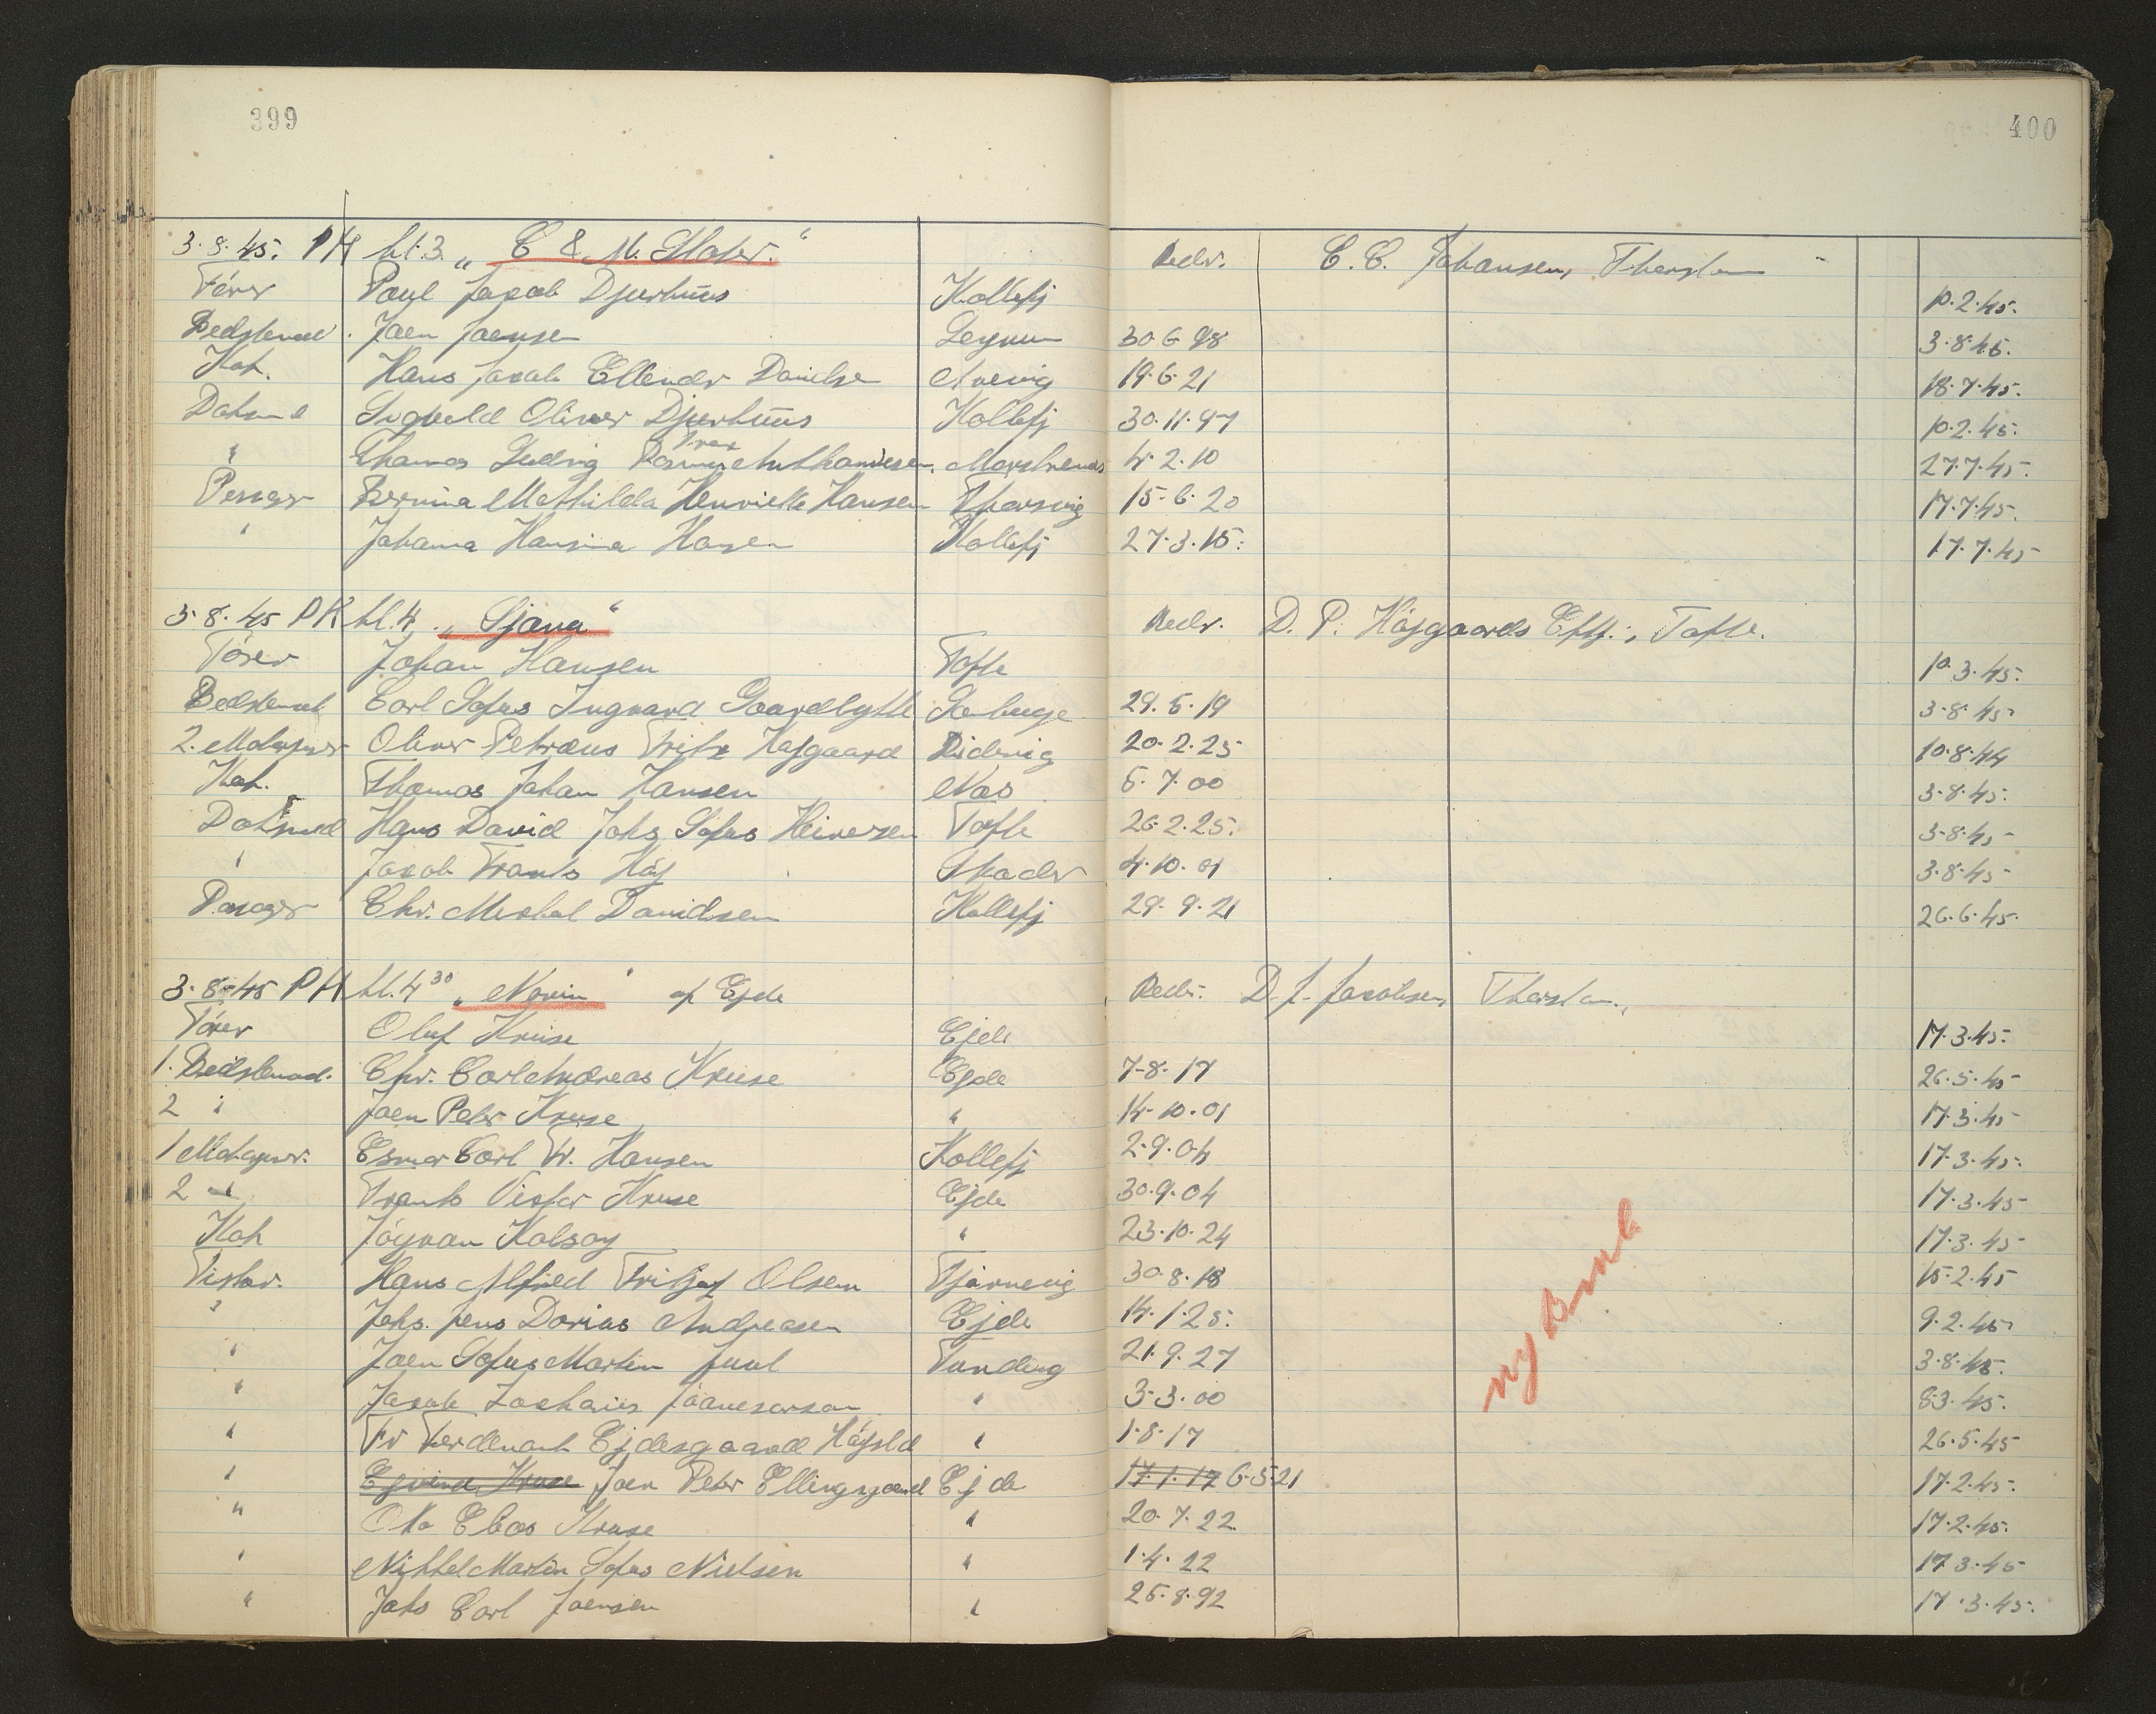 399
400
3.8.45. PM kl. 3. „ C & M. " Redr. C. C. Johansen, Thorshavn
Förer Poul Jacob Djurhuus Kollefj 10.2.45.
Bedstemd. Joen Joensen Leynum 30.6.98 3.8.45.
Kok. Hans Jacob Ellendr Danielsen Aaevig 19.6.21 18.7.45.
Dæksmd Sigvald Oliver Djurhuus Kollefj 30.11.97 10.2.45.
" Thomas Ludvig 4.2.10 27.7.45.
Passager Bernina Mathilda Henriette Hansen Thorsvig 15.6.20 17.7.45.
" Johanna Hansina Hansen Kollefj 27.3.15. 17.7.45
3.8.45 PM kl. 4. „ Sjana " Redr. D. P. Höjgaards Eftf., Tofte.
Förer Johan Hansen Tofte 10.3.45.
Bedstemd Carl Sofus Ingvard Gaardlykke 29.5.19 3.8.45
2. Motorpasser Oliver Petræus Fritz Højgaard Ridevig 20.2.25 10.8.44
Kok. Thomas Johan Hansen Næs 5.7.00 3.8.45.
Dæksmd Hans David Johs Sofus Heinesen Tofte 26.2.25. 3.8.45
" Jacob Frants Höj 4.10.01 3.8.45
Passager Chr. Mikkel Davidsen Kollefj 29.9.21 26.6.45.
3.8.45 PM kl. 4³⁰ „ Norin " af Ejde Redr. D. J. Jacobsen, Thorshavn.
Förer Oluf Kruse Ejde 17.3.45.
1. Bedstemd. Chr. Carl Andreas Kruse Ejde 7-8.17 26.5.45
2 " Joen Peter Kruse " 14.10.01 17.3.45
1 Motorpasser. Esmar Carl Fr. Hansen Kollefj 2.9.04 17.3.45.
2 " Frants Victor Kruse Ejde 30.9.04 17.3.45
Kok Jógvan Kalsoy " 23.10.24 17.3.45
Fisker. Hans Alfred Fritjof Olsen Tjörnevig 30.8.18 15.2.45
" Johs. Jens Dorius Andreasen Ejde 14.1.25. 9.2.45
" Joen Sofus Martin Juul Funding 21.9.27 3.8.45.
" Jacob Zacharias Jóanesarson " 3.3.00 8.3.45.
" Fr Ferdenant Ejdesgaard " 1.8.17 26.5.45
" Ejvind Kruse Joen Peter Ellingsgaard Ejde 17.1.17 6.5.21 17.2.45.
" Otto Elias Kruse " 20.7.22 17.2.45.
" Nikkel Martin Sofus Nielsen " 1.4.22 17 3.45
" Johs Carl Joensen " 25.8.92 17.3.45.
ny